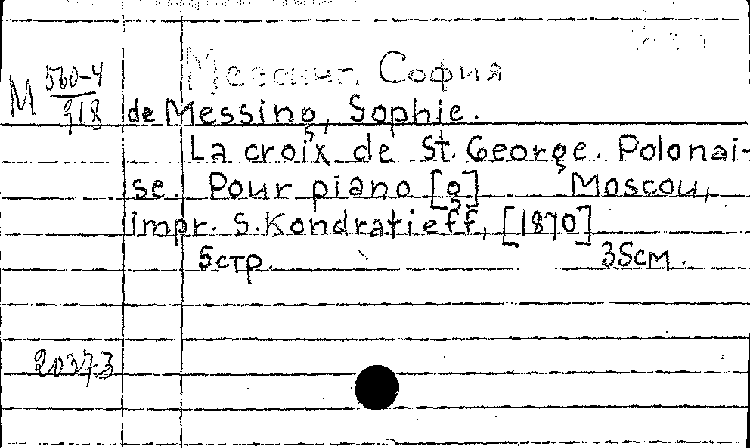 Мессинг, София
М 560-4
918
de Messing, Sophie.
La croix de St. George. Polonai-
se. Pour piano [g] Moscou,
impr. S. Kondratieff, [1870]
5 стр. 35см.
2037-3